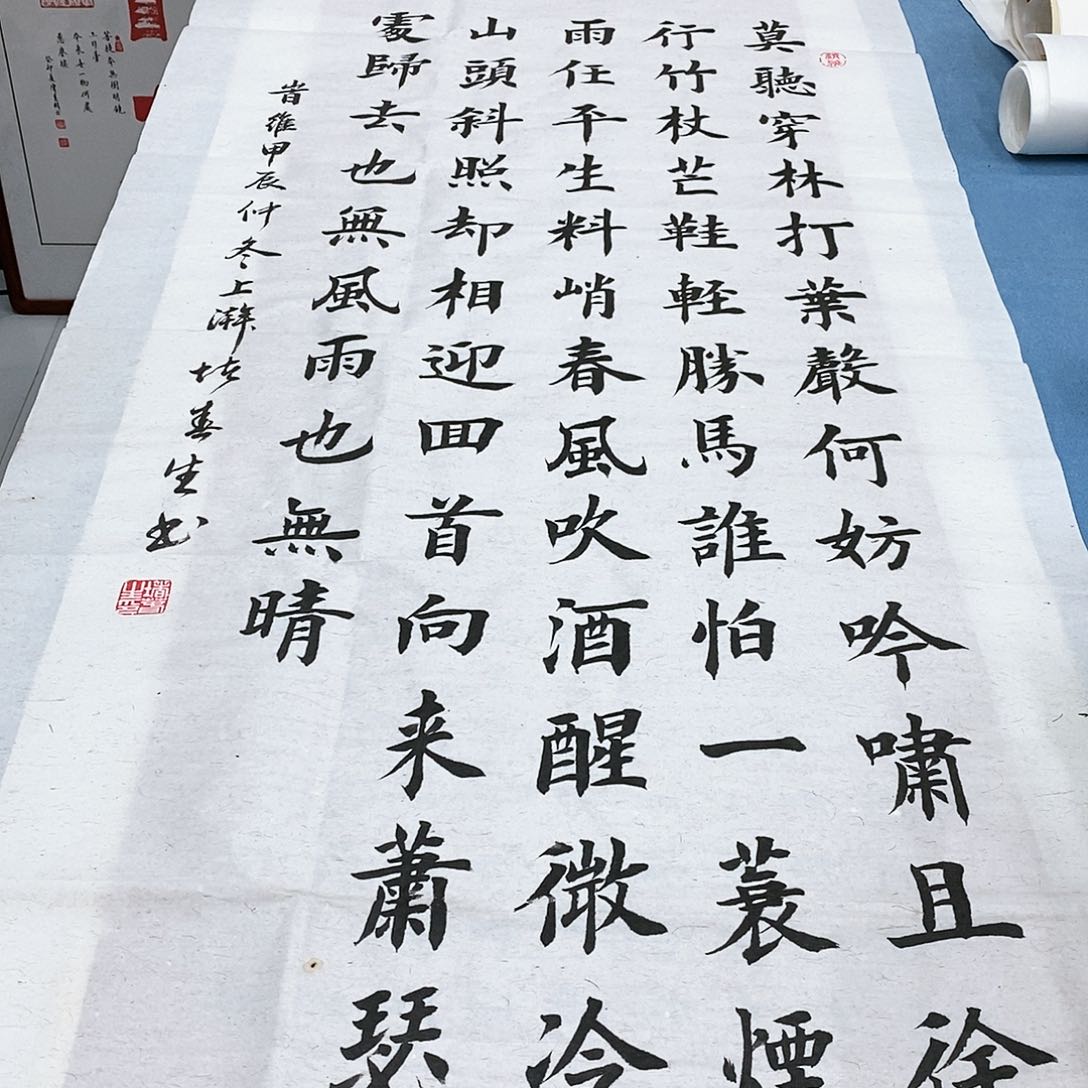 莫聽穿林打葉聲何妨吟嘯且徐
行竹杖芒鞋輕勝馬誰怕一蓑煙
雨任平生料峭春風吹酒醒微冷
山頭斜照却相迎回首向来蕭瑟
處歸去也無風雨也無晴
旹維甲辰仲冬上澣 善生书
菩提本無樹明鏡